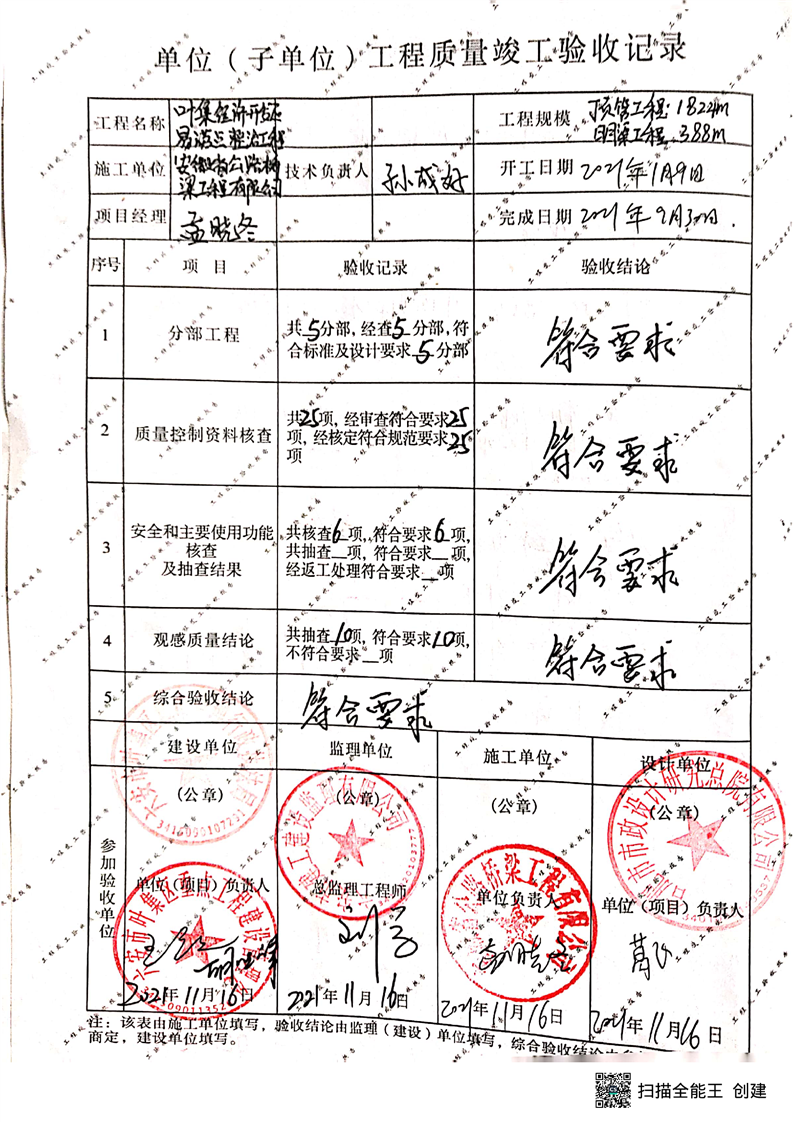 单位（子单位）工程质量竣工验收记录
工程名称
叶集经济开发区
易涝点整治工程
工程规模
顶管工程:1822m
明渠工程:388m
施工单位
安徽省公路桥
梁工程有限公司
技术负责人
孙成好
开工日期
2021年1月9日
项目经理
孟晓冬
完成日期
2021年9月30日.
序号 项 目 验收记录 验收结论
1
分部工程
共5分部，经查5分部，符
合标准及设计要求5分部
符合要求
2
质量控制资料核查
共25项，经审查符合要求25
项，经核定符合规范要求25
项
符合要求
3
安全和主要使用功能
核查
及抽查结果
共核查6项，符合要求6项，
共抽查__项，符合要求__项，
经返工处理符合要求__项
符合要求
4
观感质量结论
共抽查10项，符合要求10项，
不符合要求__项
符合要求
5
综合验收结论
符合要求
参加验收单位
建设单位
监理单位
施工单位
设计单位
（公章）
（公章）
（公章）
（公章）
单位（项目）负责人
总监理工程师
单位负责人
单位（项目）负责人
2021年11月16日
2021年11月16日
2021年11月16日
2021年11月16日
六安市叶集区重点工程建设
建设监理有限公司
公路桥梁工程有限公司
合肥市市政设计研究总院有限公司
注：该表由施工单位填写，验收结论由监理（建设）单位填写，综合验收结论由参
商定，建设单位填写。
扫描全能王 创建